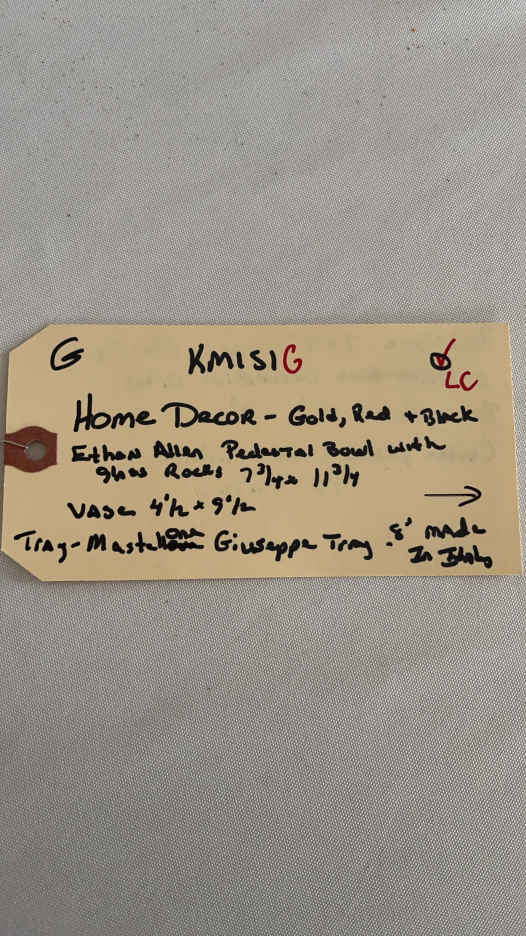 G KMISIG LC
Home Decor - Gold, Red + Black
Ethan Allen Pedestal Bowl with
glass Rocks 7 3/4 x 11 3/4
VASE 4 1/2 x 9 1/2 →
Tray - Mastellone Giuseppe Tray. 8" made
In Italy